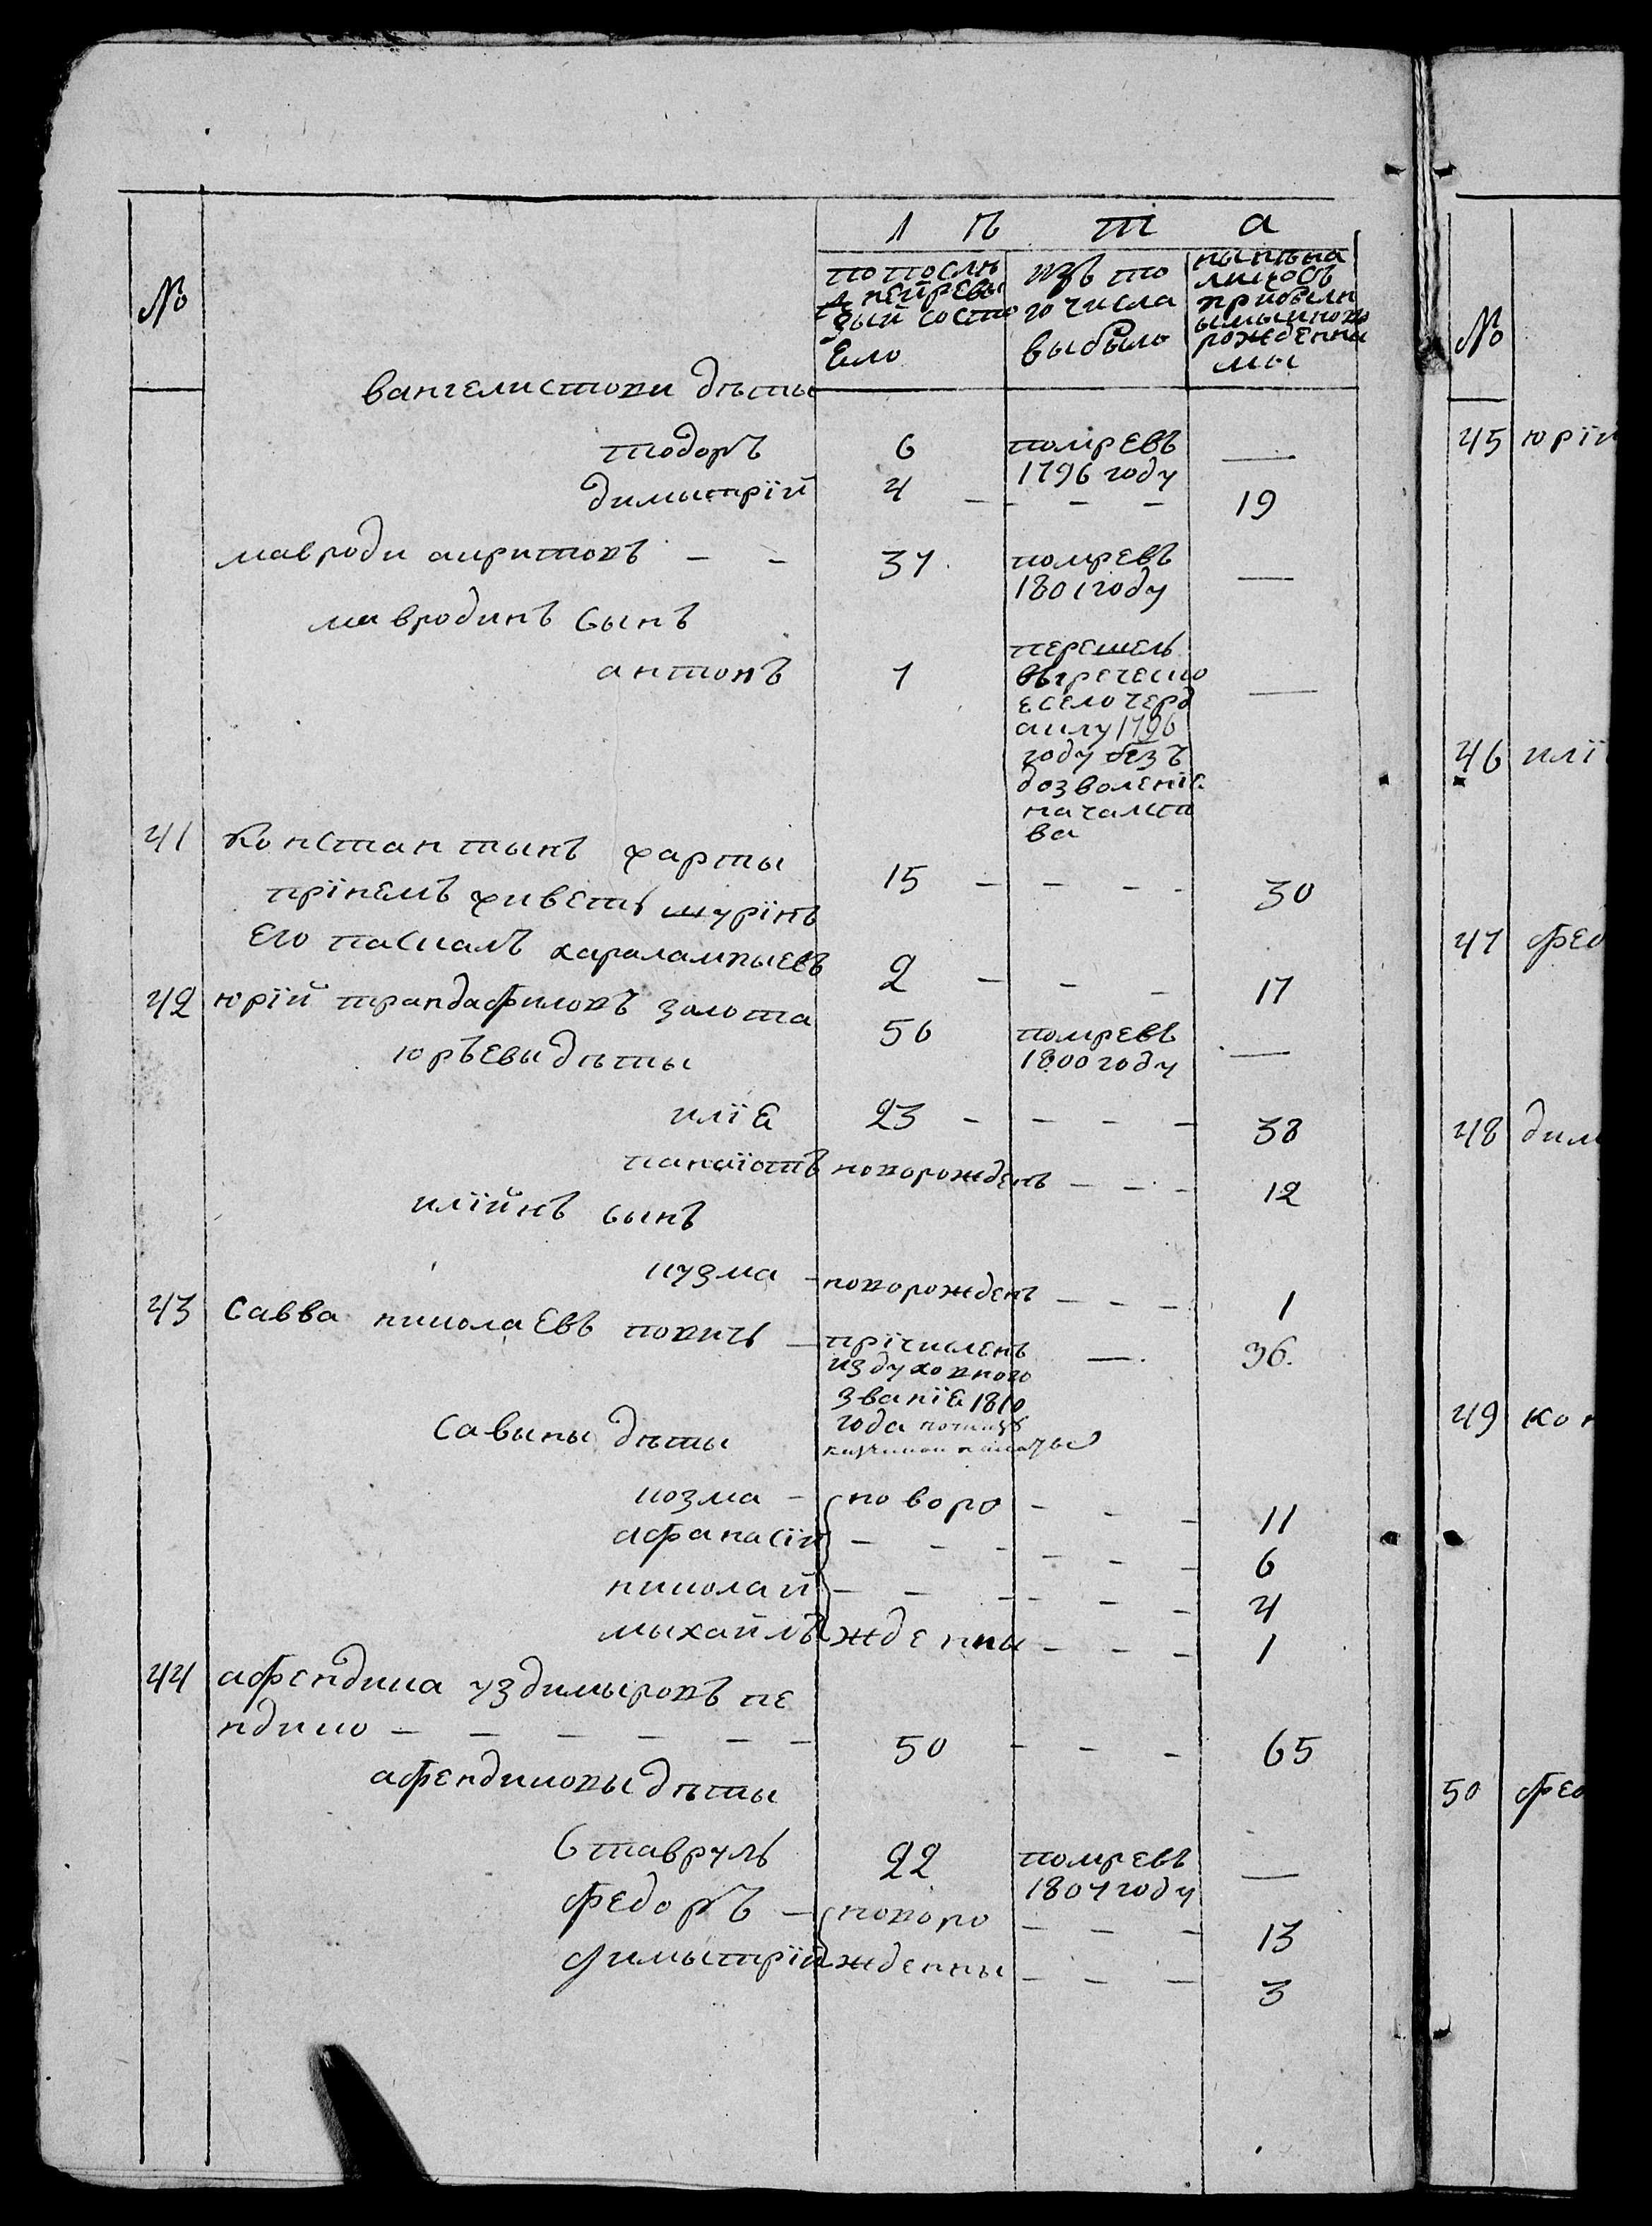 №
Л ѣ т а
По послѣ
дней ревы
зый состо
Ело
Изъ то
го числа
выбыло
ныне на
лицо съ
прибылы
ымы и ново
рожденны
мы
вангелистови дѣты
тодоръ 6 помревъ 1796 году —
димытрїй 4 - - - - 19
мавроди киритовъ - - 37 помревъ 1801 году —
мавродинъ сынъ
антонъ 7 перешелъ —
въгреческо
е село черд
аклу 1796
году безъ
дозволенїе
началст
ва
41 Константынъ харты 15 - - - - 30
прїнемъ живетъ шурїнъ
Его паскалъ харалампыевъ 2 - - - 17
42 юрїй трандафиловъ золота 56 помревъ 1800 году —
юръевы дѣты
илїе 23 - - - - 38
панаїотъ новорожденъ - - - 12
илїйнъ сынъ
кузма - новорожденъ - - - 1
43 Савва николаЕвъ поповъ - прїчисленъ — 36.
из духовного
званїе 1810
года
Савыны дѣты
козма - новоро - - - 11
афанасїй - - - - - - 6
николай - - - - - - 4
мыхайлъ жденны - - - 1
44 афендика уздимыровъ пе
ндико - - - - - - 50 - - - 65
афендиковы дѣты
Ставрулъ 22 помревъ 1807 году —
федоръ - новоро - - - 13
димытрїй жденны - - - 3
№
45 юрїй
46 илї
47 фео
48 дим
49 кон
50 фео